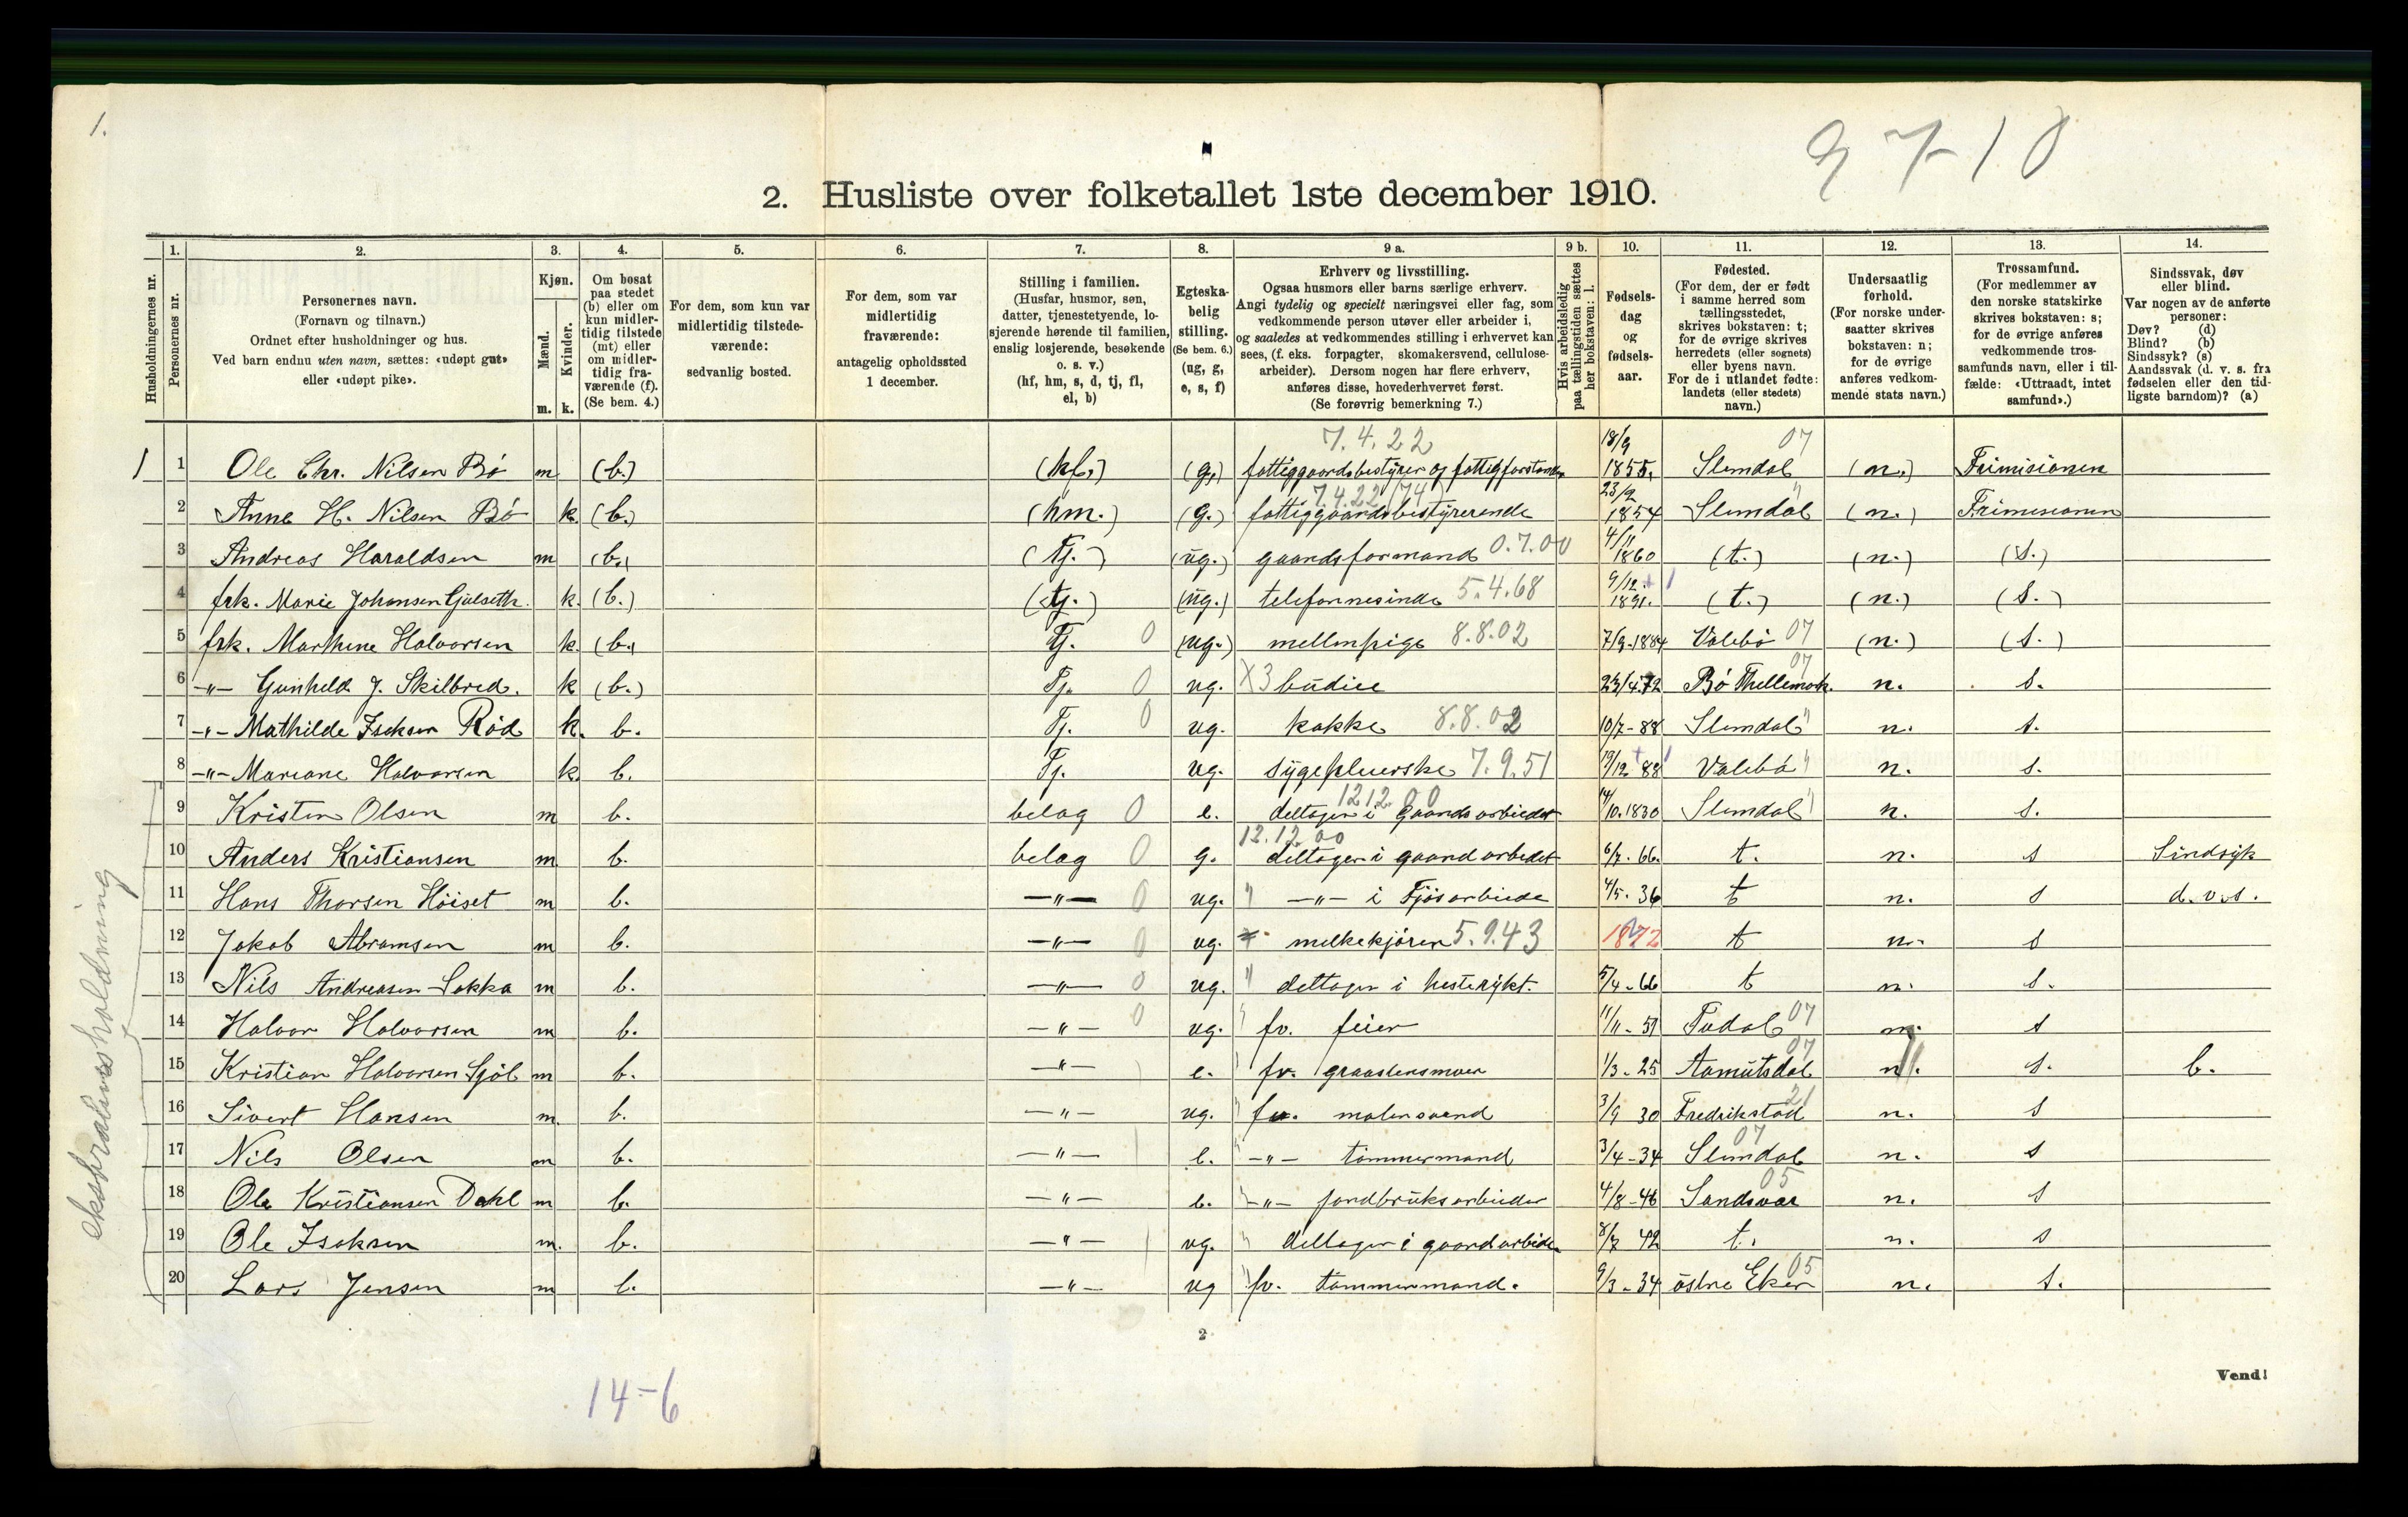 1.
97-10
2. Husliste over folketallet 1ste december 1910.
Husholdningernes nr.
1. Personernes nr.
2. Personernes navn. (Fornavn og tilnavn.) Ordnet efter husholdninger og hus. Ved barn endnu uten navn, sættes: «udøpt gut» eller «udøpt pike».
3. Kjøn. Mænd. m. Kvinder. k.
4. Om bosat paa stedet (b) eller om kun midlertidig tilstede (mt) eller om midlertidig fraværende (f). (Se bem. 4.)
5. For dem, som kun var midlertidig tilstedeværende: sedvanlig bosted.
6. For dem, som var midlertidig fraværende: antagelig opholdssted 1 december.
7. Stilling i familien. (Husfar, husmor, søn, datter, tjenestetyende, losjerende hørende til familien, enslig losjerende, besøkende o. s. v.) (hf, hm, s, d, tj, fl, el, b)
8. Egteskabelig stilling. (Se bem. 6.) (ug, g, e, s, f)
9 a. Erhverv og livsstilling. Ogsaa husmors eller barns særlige erhverv. Angi tydelig og specielt næringsvei eller fag, som vedkommende person utøver eller arbeider i, og saaledes at vedkommendes stilling i erhvervet kan sees, (f. eks. forpagter, skomakersvend, cellulosearbeider). Dersom nogen har flere erhverv, anføres disse, hovederhvervet først. (Se forøvrig bemerkning 7.)
9 b. Hvis arbeidsledig paa tællingstiden sættes her bokstaven: l.
10. Fødselsdag og fødselsaar.
11. Fødested. (For dem, der er født i samme herred som tællingsstedet, skrives bokstaven: t; for de øvrige skrives herredets (eller sognets) eller byens navn. For de i utlandet fødte: landets (eller stedets) navn.)
12. Undersaatlig forhold. (For norske undersaatter skrives bokstaven: n; for de øvrige anføres vedkommende stats navn.)
13. Trossamfund. (For medlemmer av den norske statskirke skrives bokstaven: s; for de øvrige anføres vedkommende trossamfunds navn, eller i tilfælde: «Uttraadt, intet samfund».)
14. Sindssvak, døv eller blind. Var nogen av de anførte personer: Døv? (d) Blind? (b) Sindssyk? (s) Aandssvak (d. v. s. fra fødselen eller den tidligste barndom)? (a)
7.4.22
1 1 Ole Chr. Nilsen Bø m (b.) (hf.) (g.) fattiggaardsbestyrer og fattigforstander 18/9 1855. Slemdal 07 (n.) Frimisionen
7.4.22 (74)
2 Anne H. Nilsen Bø k. (b.) (hm.) (g.) fattiggaardsbestyrerende 23/2 1854 Slemdal " (n.) Frimisionen
3 Andreas Haraldsen m (b.) (Tj.) (ug.) gaardsformand 0.7.00 4/11 1860 (t.) (n.) (s.)
4 frk. Marie Johansen Gjulseth. k. (b.) (tj.) (ug.) telefonnesinde 5.4.68 9/12 1891. (t.) (n.) (s.)
5 frk. Marthine Halvorsen k. (b.) Tj. 0 (ug.) mellmpige 8.8.02 7/9-1884 Valebø 07 (n.) (s.)
6 -"- Gunhild J. Skilbred. k (b.) Tj. 0 ug. X3 budeie 23/4.72 Bø Thellemark. 07 n. s.
7 -"- Mathilde Isaksen Rød k. b. Tj. 0 ug. kokke 8.8.02 10/7-88 Slemdal " n. s.
8 -"- Mariane Halvorsen k. b. Tj. ug. sygepleierske 7.9.51 19/12 88 Valebø " n. s.
9 Kristen Olsen m b. belag 0 e. deltager i gaardsarbeidet 12.12.00 14/10.1830 Slemdal " n. s.
10 Anders Kristiansen m b. belag 0 g. deltager i gaardarbedet 12.12.00 6/7.66. t. n. s Sindsyk
11 Hans Thorsen Høiset m b. -"- 0 ug. " -"- i Fjøsarbeide 4/5.36 t n. s d.v.s.
12 Jakob Abramsen m b. -"- 0 ug. melkekjører 5.9.43 1872 t n. s
13 Nils Andreasen Løkka m b. -"- 0 ug. " deltager i hesterykt. 5/4-66 t n. s.
14 Halvor Halvorsen m b. -"- 0 ug. " fv. feier 11/11-51 Tudal 07 n. s
15 Kristian Halvorsen Sjøl m b. -"- e. " fv. graastensmuer 1/3-25 Aamutsdal 07 n. s. b.
16 Sivert Hansen m. b. -"- ug. " fv. malersvend 3/9 30 Fredrikstad 21 n. s
17 Nils Olsen m b. -"- e. " -"- tømmermand 3/4-34 Slemdal 07 n. s
18 Ole Kristiansen Dahl m b. -"- e. " -"- jordbruksarbeider 4/8-46 Sandsvær 05 n. s
19 Ole Isaksen m. b. -"- ug. " deltager i gaardarbeide. 8/7 42 t. n. s
20 Lars Jensen m b. -"- ug " fv. tømmermand. 9/3-34 østre Eker 05 n. s.
ekstrahusholdning
2
14-6
Vend!